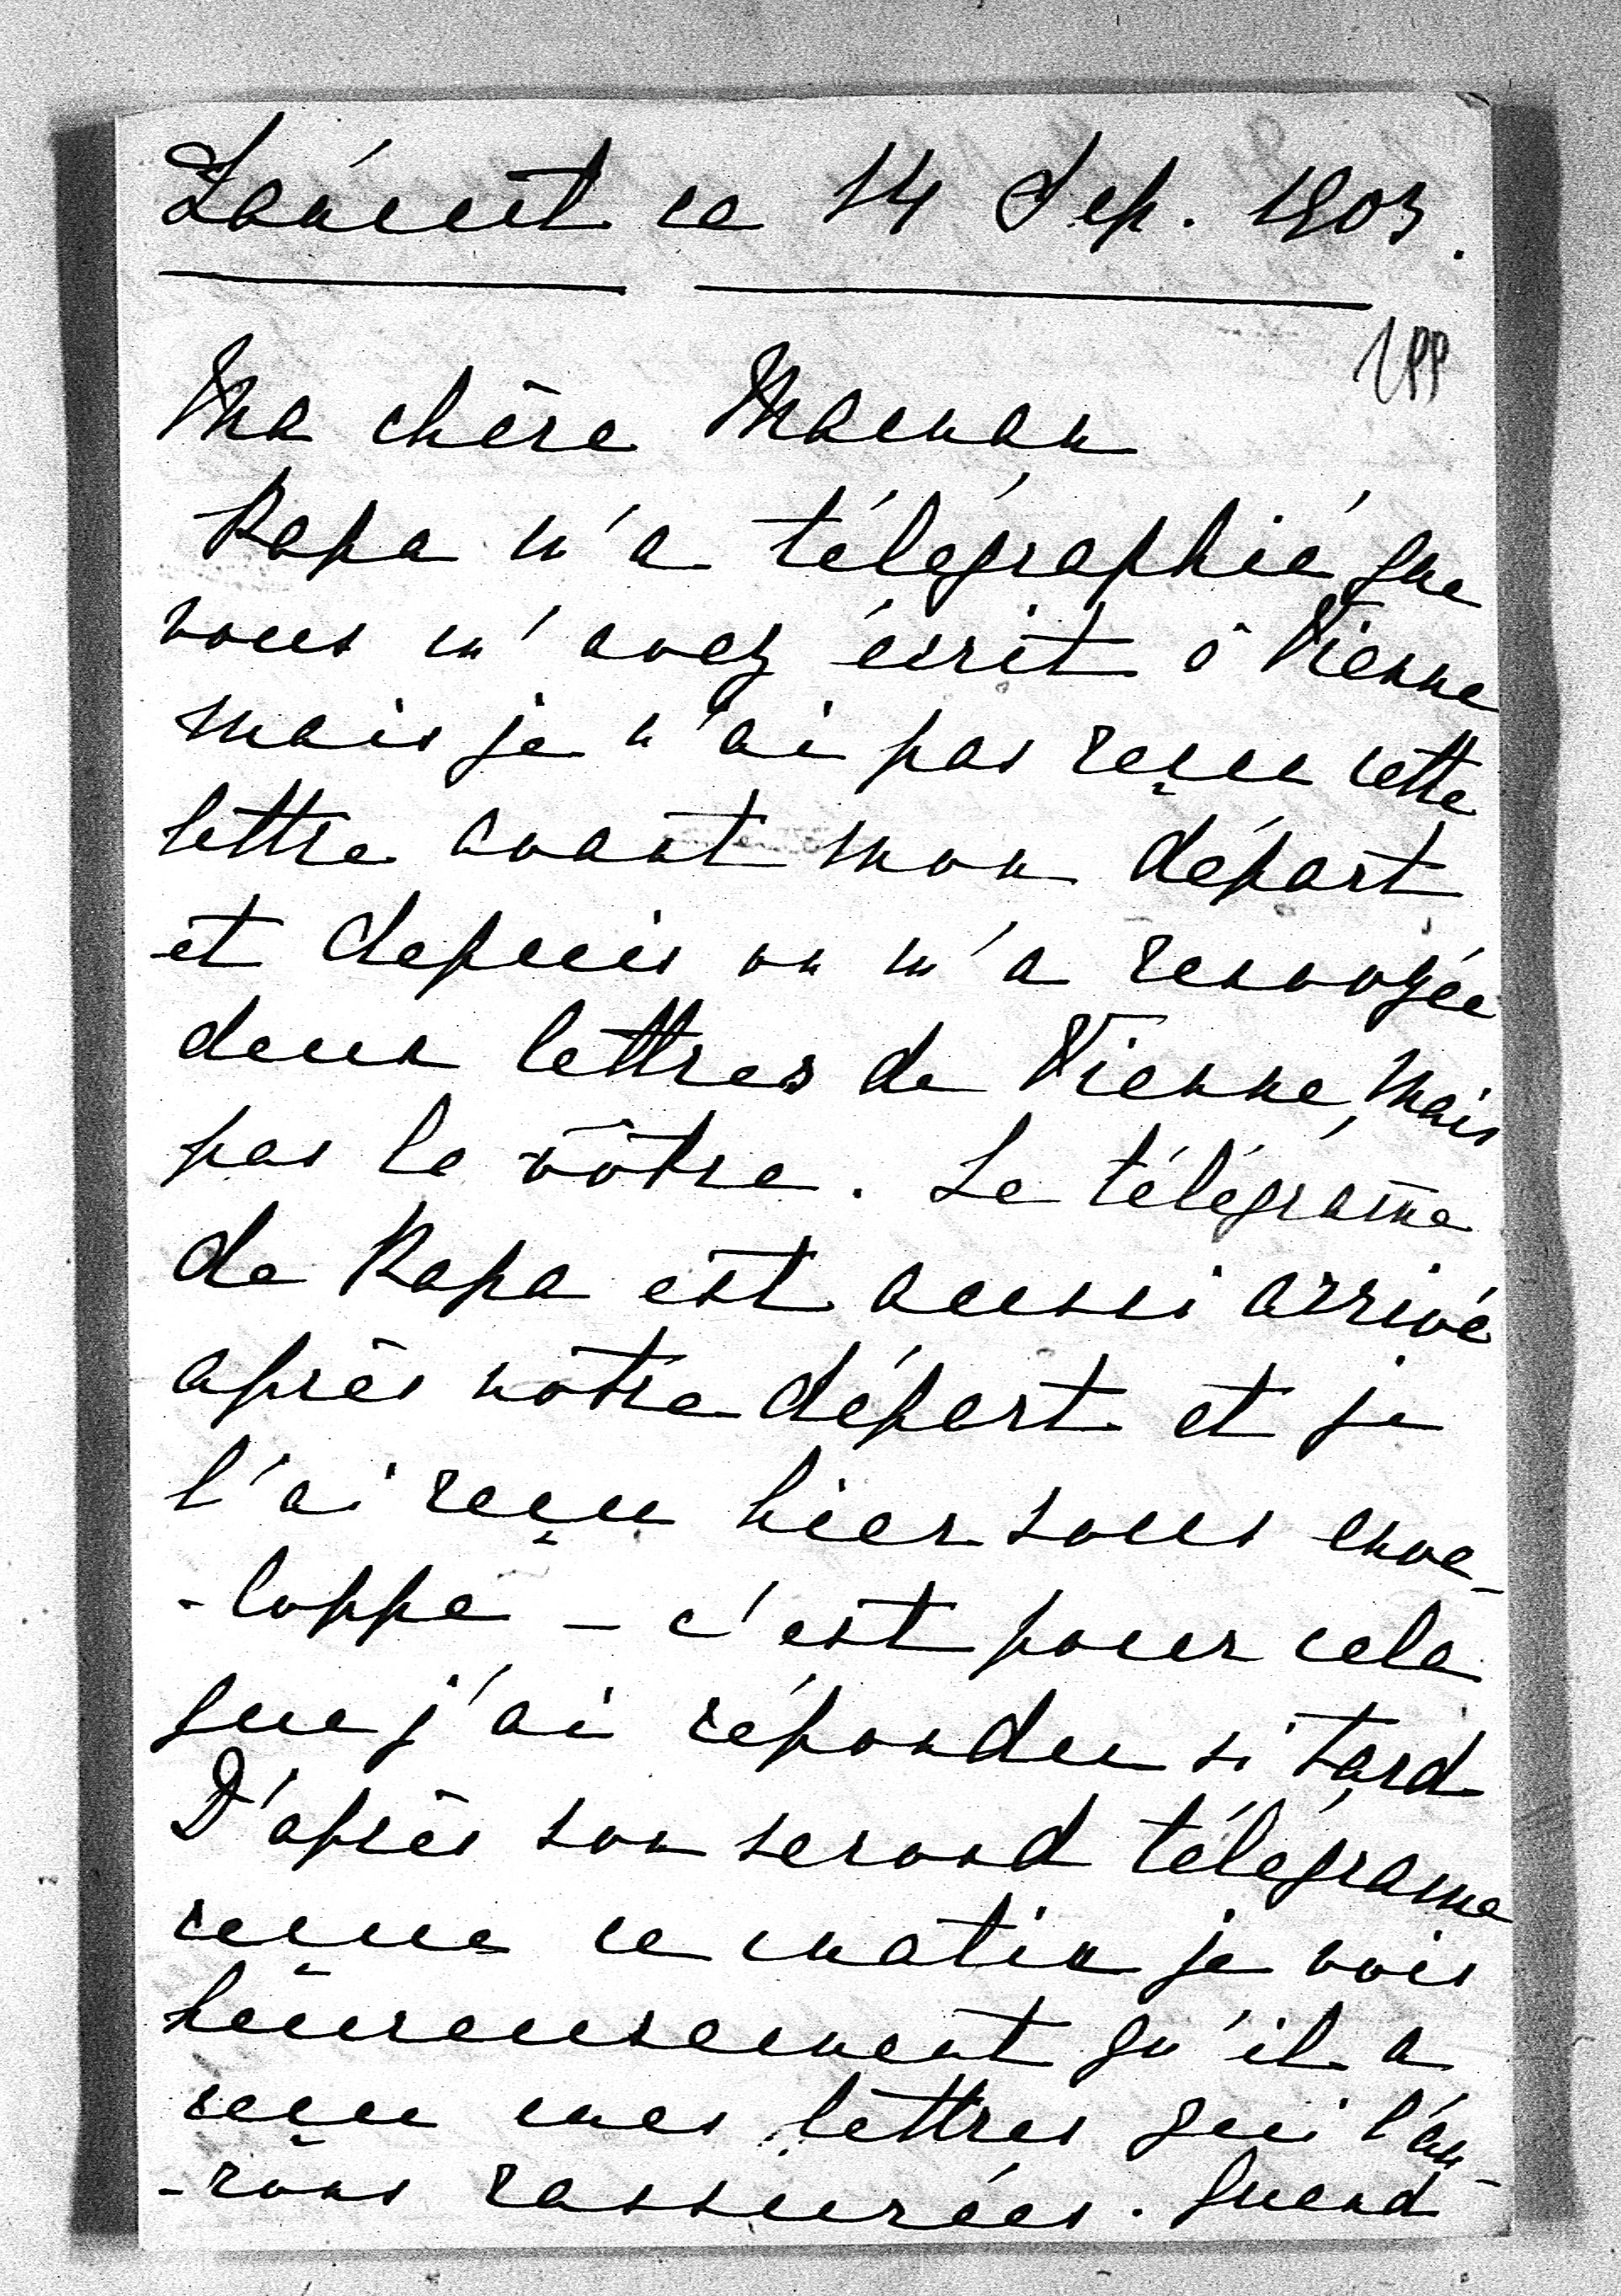 Łańcut ce 14 Sep. 1903.
1PP
Ma chère Maman
Papa m'a télégraphié que
vous m'avez écrit à Vienne
mais je n'ai pas reçu cette
lettre avant mon départ
et depuis on m'a renvoyée
deux lettres de Vienne, mais
pas la vôtre. Le télégrame
de Papa est aussi arrivé
après nôtre départ et je
l'ai reçu hier sous enve-
-loppe – c'est pour cela
que j'ai répondu si tard
D'après son second télégrame
reçue ce matin je vois
heureusement qu'il a
reçu mes lettres qui l'au-
-rons rassurées. Quand